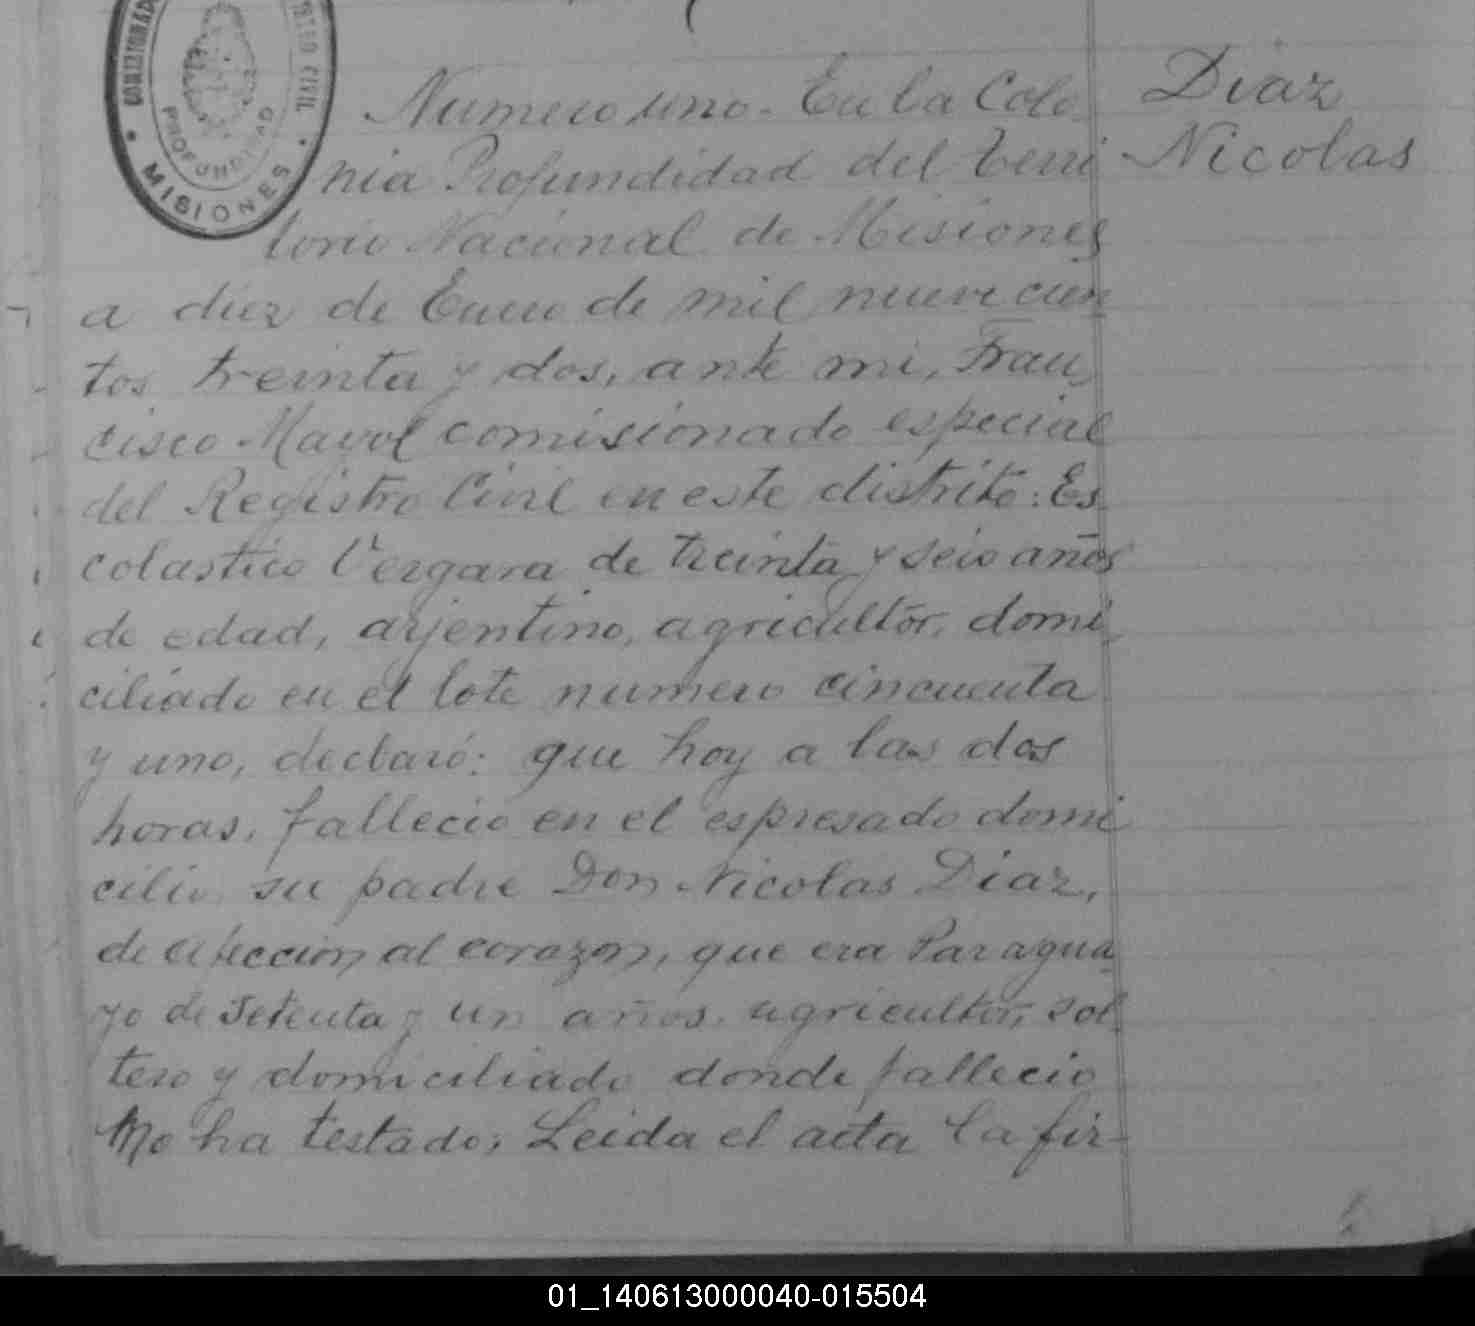 MISIONES
PROFUNDIDAD
Diaz
Nicolas
Numero uno. En la Colo
nia Profundidad del Terri
torio Nacional de Misiones
a diez de Enero de mil nuevecien
tos treinta y dos, ante mi, Fran
cisco Mayol comisionado especial
del Registro Civil en este distrito: Es
colastico Vergara de treinta y seis años
de edad, arjentino, agricultor, domi
ciliado en el lote numero cincuenta
y uno, declaró: que hoy a las dos
horas, fallecio en el espresado domi
cilio su padre Don Nicolas Diaz,
de afeccion al corazon, que era Paragua
yo de setenta y un años, agricultor, sol
tero y domiciliado donde fallecio
No ha testado; Leida el acta la fir-
01_140613000040-015504